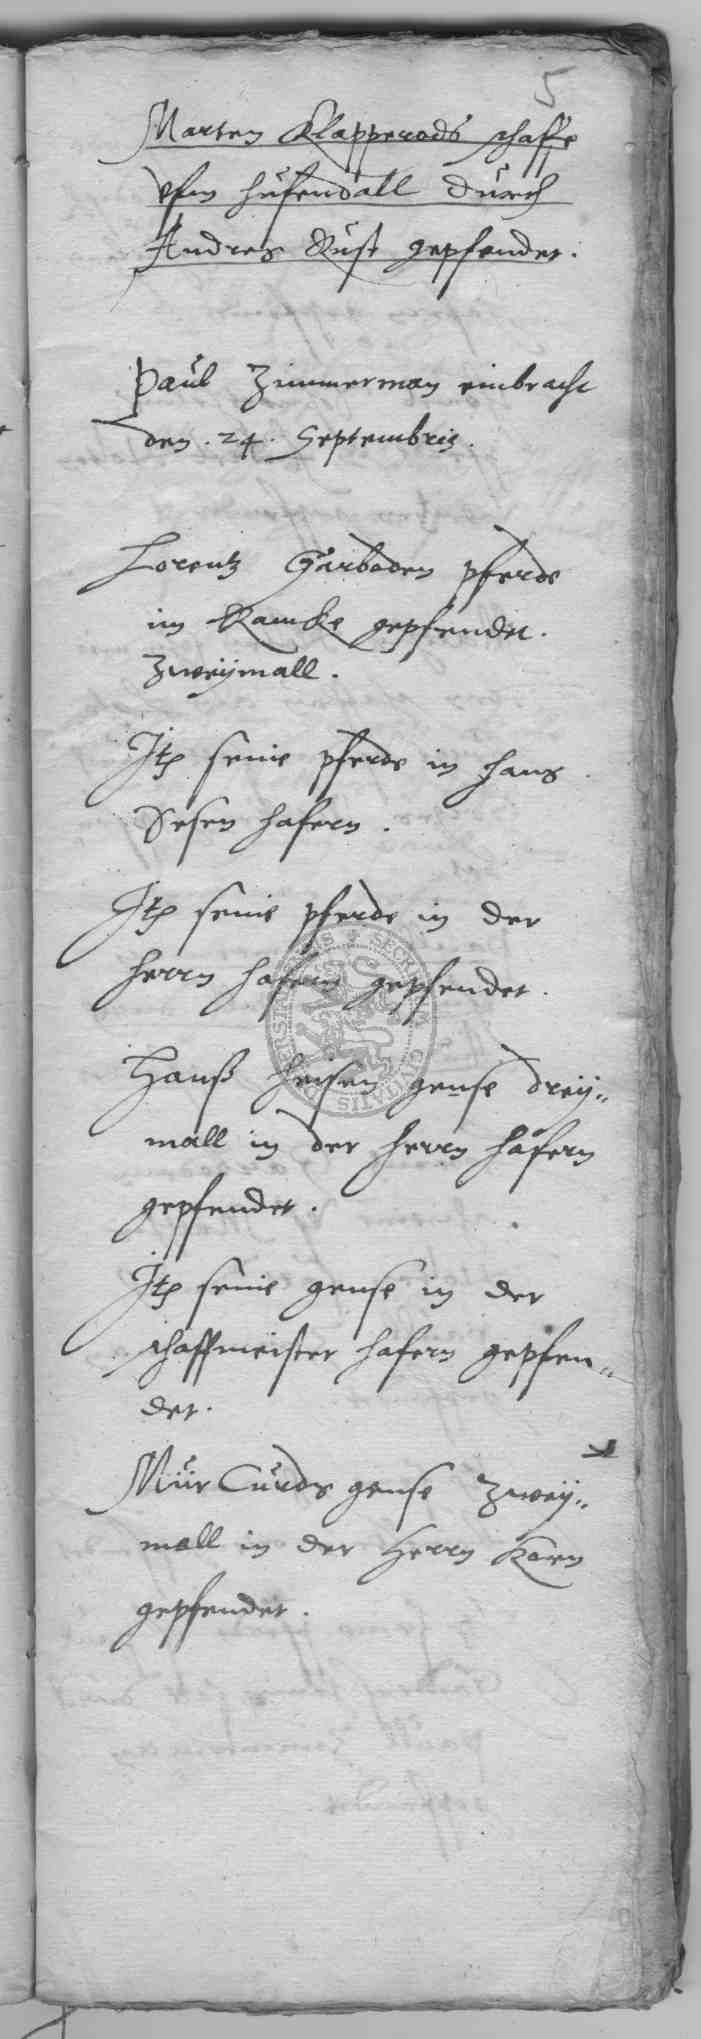 5
Marten Klapperods schaffe
vfm hufendall durch
Andres Rust gepfendet.
Paul Zimmerman einbracht
den .24. Septembris.
Lorentz Garboden pferde
im Kamcke gepfendet.
Zweymall.
Itz seine pferde in hans
Sesen hafern.
Itz seine pferde in der
herrn hafern gepfendet.
Hanß heisen gense drey„
mall in der herrn hafern
gepfendet.
Itz seine gense in der
schaffmeister hafern gepfen„
det.
Mür Curds gense Zwey„
mall in der Herrn Korn
gepfendet.